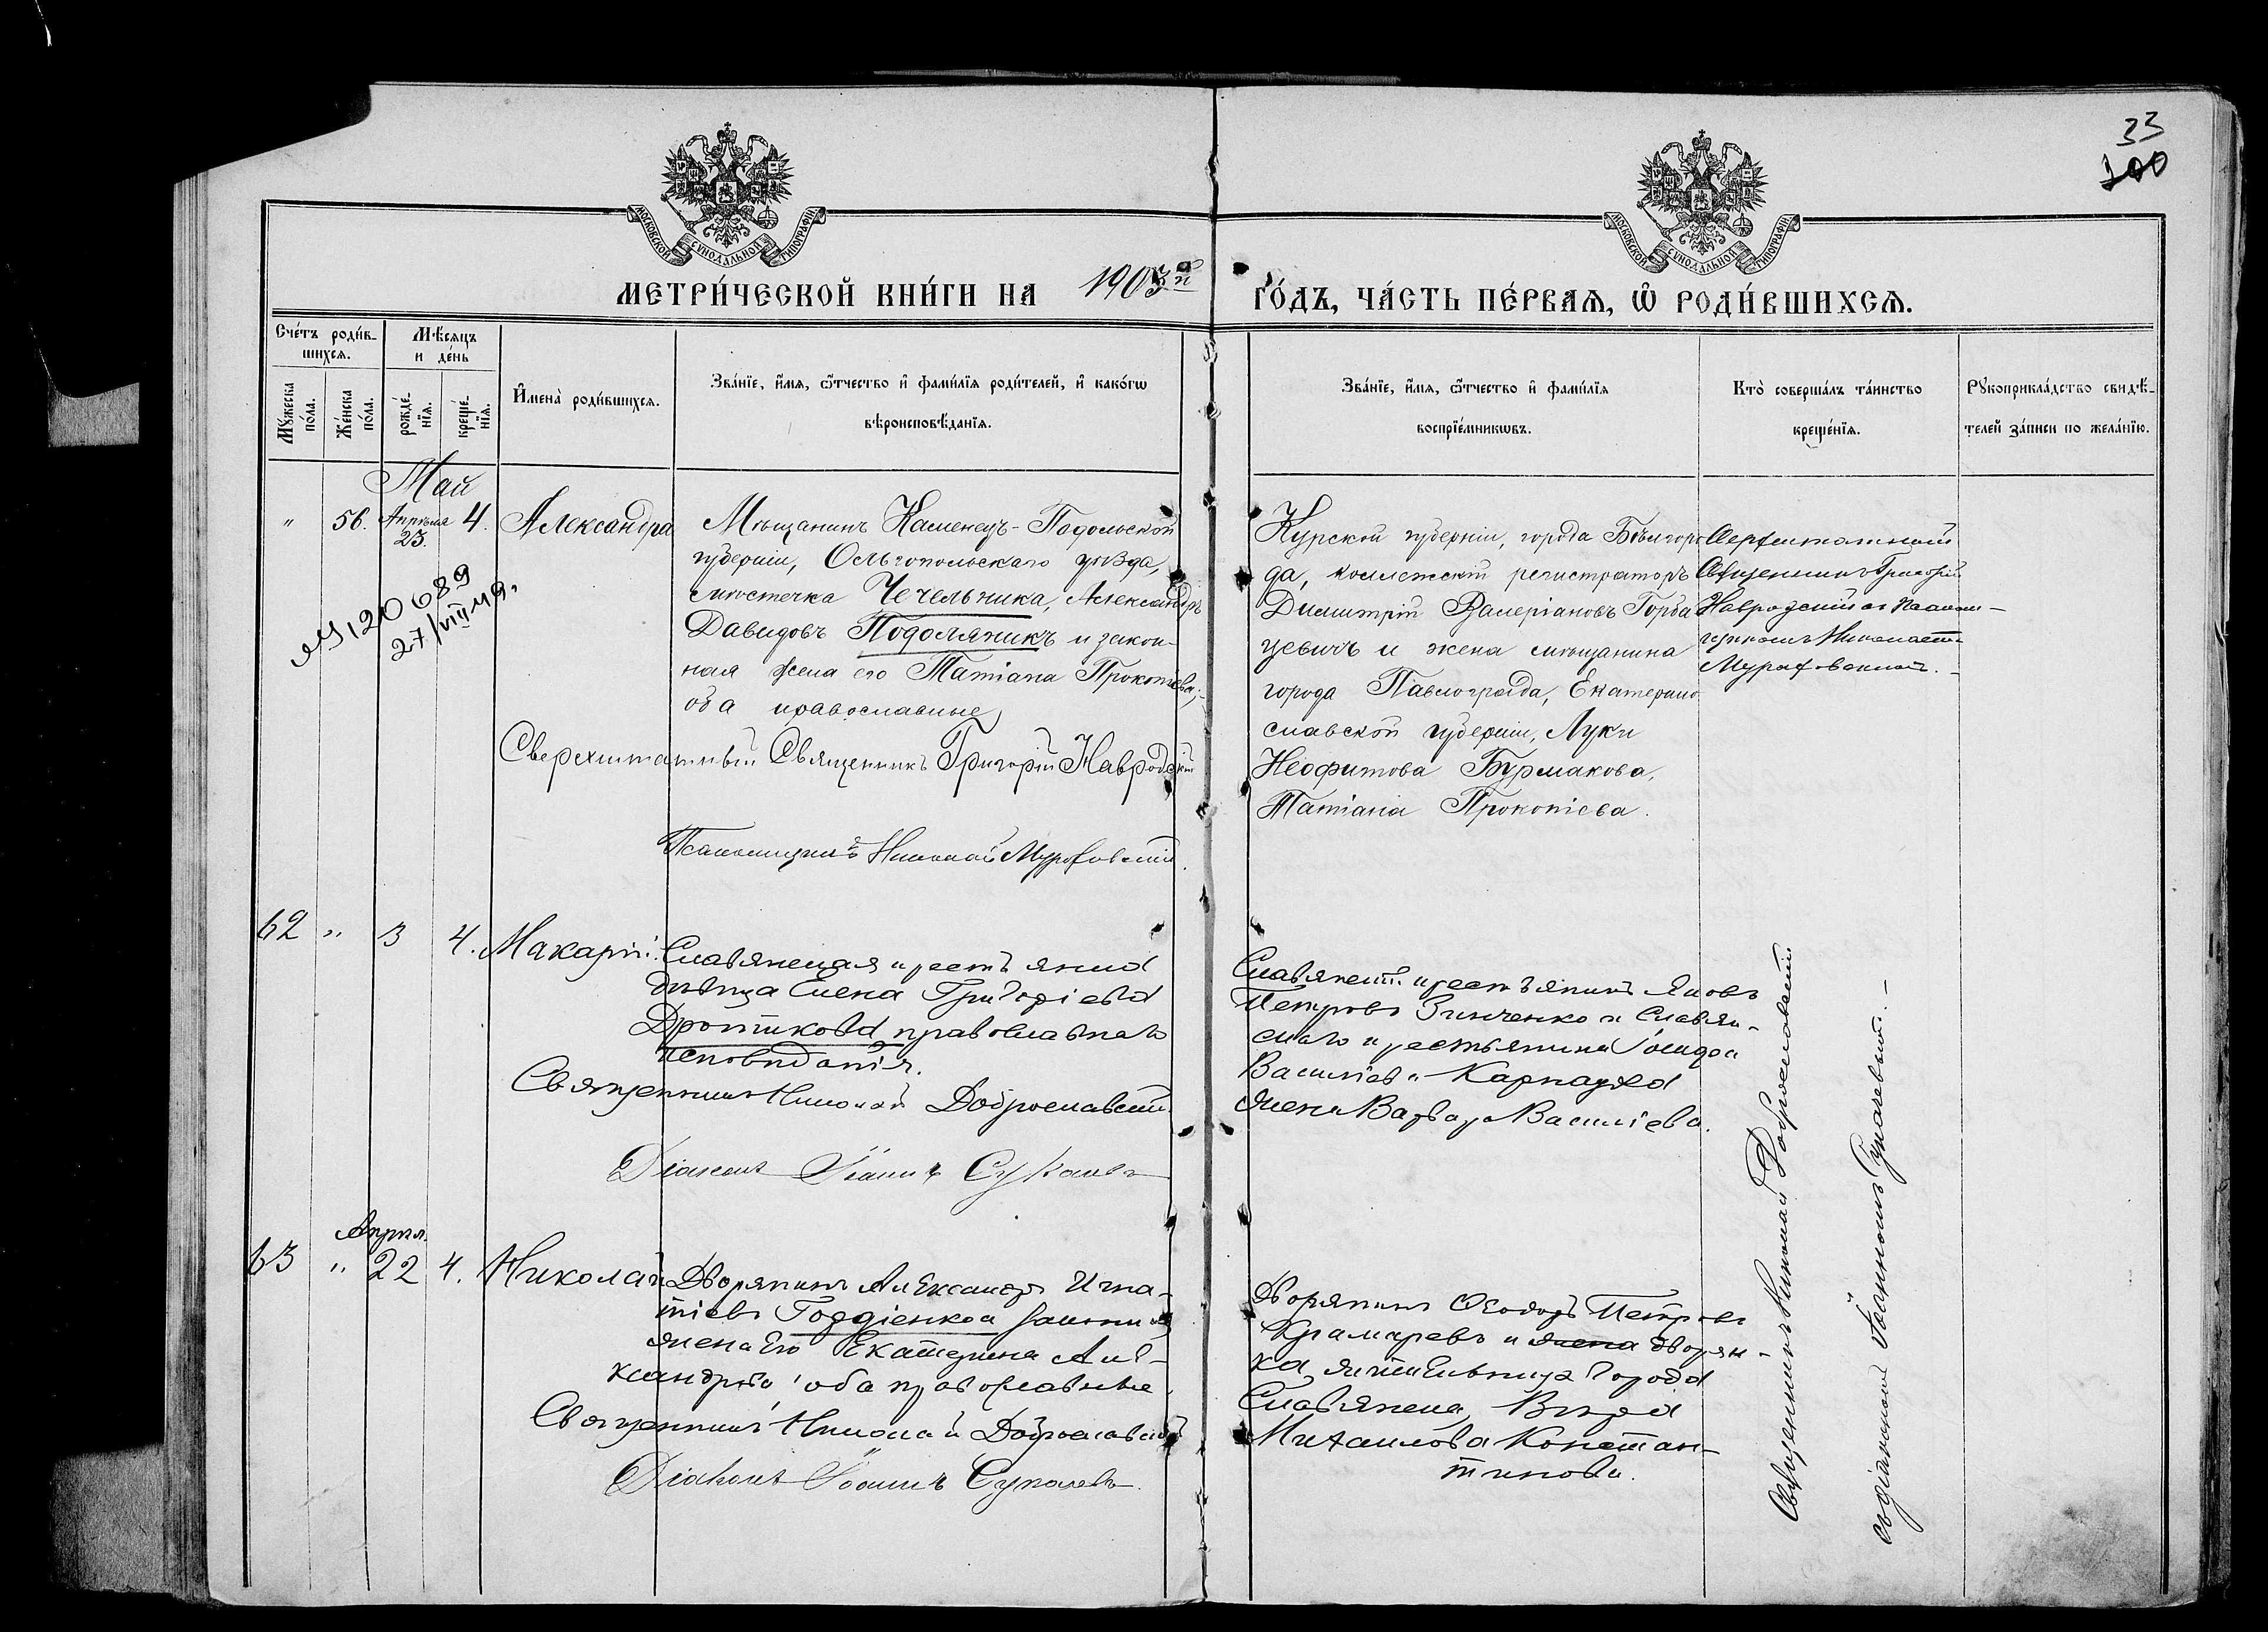 33
100
МОСКОВСКОЙ СѴНОДАЛЬНОЙ ТИПОГРАФІИ
МОСКОВСКОЙ СѴНОДАЛЬНОЙ ТИПОГРАФІИ
МЕТРИ́ЧЕСКОЙ КНИ́ГИ НА 1903й
ГО́ДЪ, ЧА́СТЬ ПЕ́РВАЯ, Ѡ҆ РОДИ́ВШИХСѦ.
Сче́тъ роди́в-
шихсѧ.
Мѣ́сѧцъ
и де́нь
Мꙋ́жеска
по́ла.
Же́нска
по́ла.
рожде́-
нїѧ.
креще́-
нїѧ.
И҆мена̀ роди́вшихсѧ.
Зва́нїе, и҆́мѧ, ѻ҆́тчество и҆ фами́лїѧ роди́телей, и҆ како́гѡ
вѣроисповѣ́данїѧ.
Зва́нїе, и҆́мѧ, ѻ҆́тчество и҆ фами́лїѧ
воспрїе́мникѡвъ.
Кто̀ соверша́лъ та́инство
креще́нїѧ.
Рꙋкоприкла́дство свидѣ́-
телей за́писи по жела́нїю.
Май
" 56. Апрѣля 23. 4. Александра
Мѣщанинъ Каменецъ-Подольской
губерніи, Ольгопольскаго уѣзда,
мѣстечка Чечельника, Александръ
Давидовъ Подоляникъ и закон-
ная жена его Татіана Прокопіева;
оба православные
№ 120689
27/VII 49.
Сверхштатный Священникъ Григорій Навродскій
Псаломщикъ Николай Мурофовскій.
Курской губерніи, города Бѣлгоро
да, коллежскій регистраторъ
Димитрій Валеріановъ Горба
цевичъ и жена мѣщанина
города Павлограда, Екатерино
славской губерніи, Луки
Неофитова Бурмакова,
Татіана Прокопіева.
Сверхштатный
Священникъ Григорій
Навродскій съ псалом-
щикомъ Николаемъ
Мурофовскимъ.
62 " 3 4. Макарій.
Славянская крестьянка
дѣвица Елена Григоріева
Дротикова православнаго
исповѣданія.
Священникъ Николай Доброславскій
Діаконъ Іоаннъ Сукалевъ
Славянскій крестьянинъ Яковъ
Петровъ Зинченко и Славян-
скаго крестьянина
Василіева Карнауха
жена Варвара Василіева.
Апрѣля
63 " 22 4. Николай
Дворянинъ Александръ Игна-
тіевъ Гордіенко и законная
жена его Екатерина Але-
ксандрова, оба православные.
Священникъ Николай Доброславскій
Діаконъ Іоаннъ Сукалевъ.
Дворянинъ Ѳеодоръ Петровъ
Крамаревъ и жена дворян-
ка, жительница города
Славянска, Вѣра
Михаилова Констан-
тинова.
Священникъ Николай Доброславскій
съ діакономъ Іоанномъ Сукалевымъ.